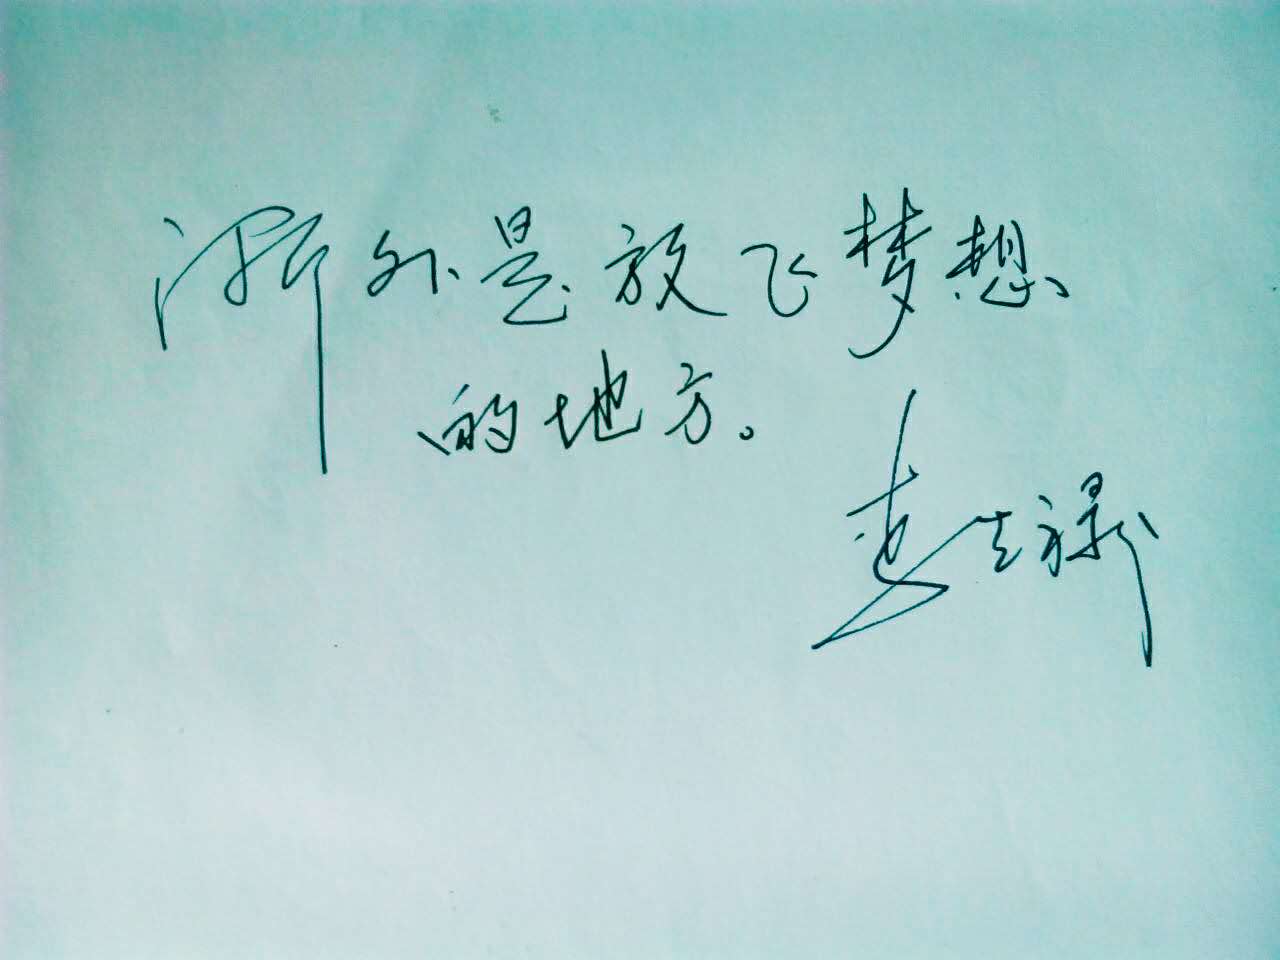 浙外是放飞梦想
的地方。